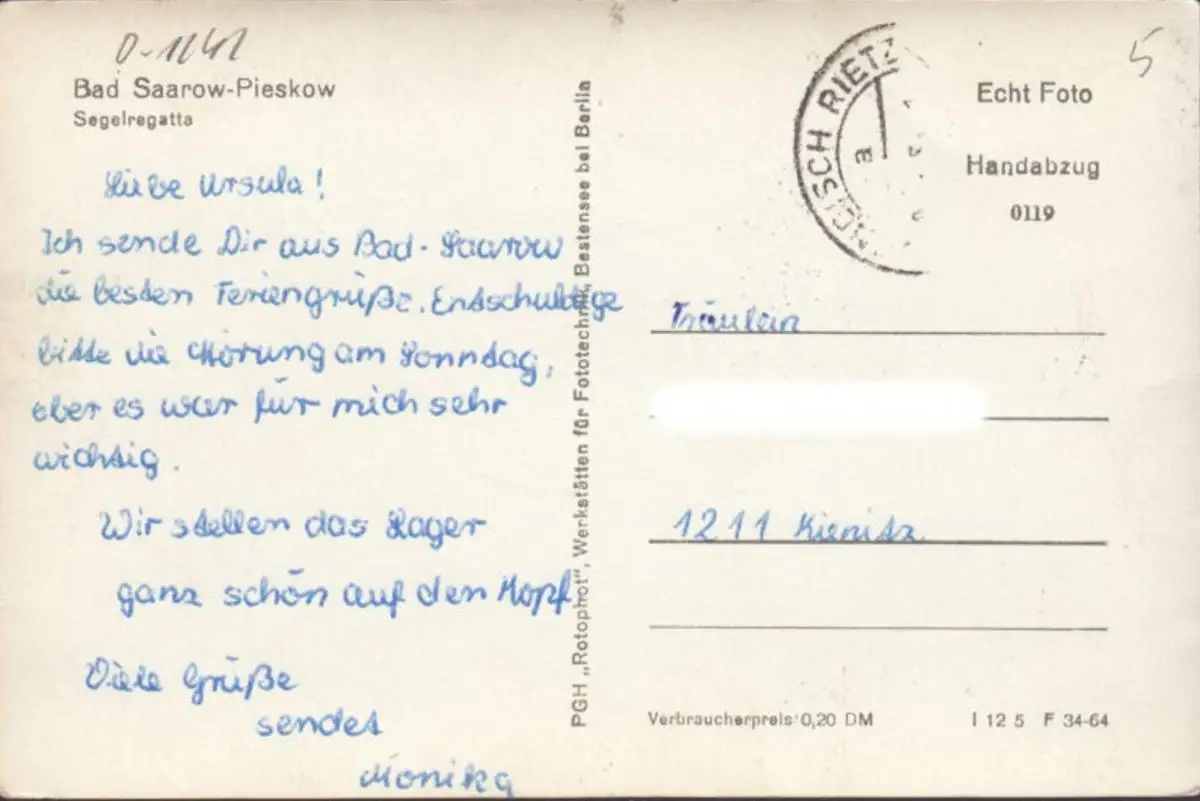 D-1242
Bad Saarow-Pieskow
Segelregatta
Liebe Ursula!
Ich sende Dir aus Bad-Saarow
die besten Feriengrüße. Entschuldige
bitte die Störung am Sonntag,
aber es war für mich sehr
wichtig.
Wir stellen das Lager
ganz schön auf den Kopf
Viele Grüße
sendet
Monika
PGH „Rotophot", Werkstätten für Fototechnik, Bestensee bei Berlin
NDISCH RIETZ
a
5
Echt Foto
Handabzug
0119
Fräulein
1211 Kienitz
Verbraucherpreis 0,20 DM
I 12 5 F 34-64